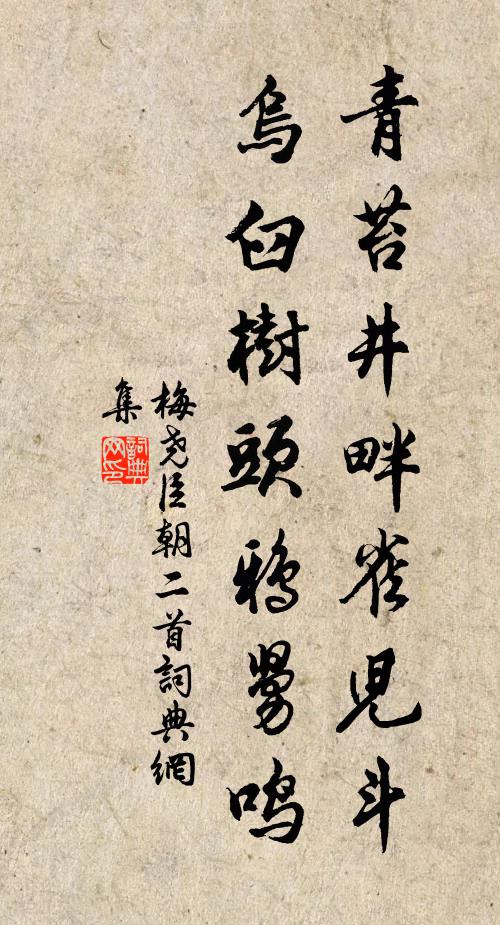 青苔井畔雀兒斗
烏臼樹頭鴉舅鳴
梅堯臣朝二首詞典網
集
詞典
网印